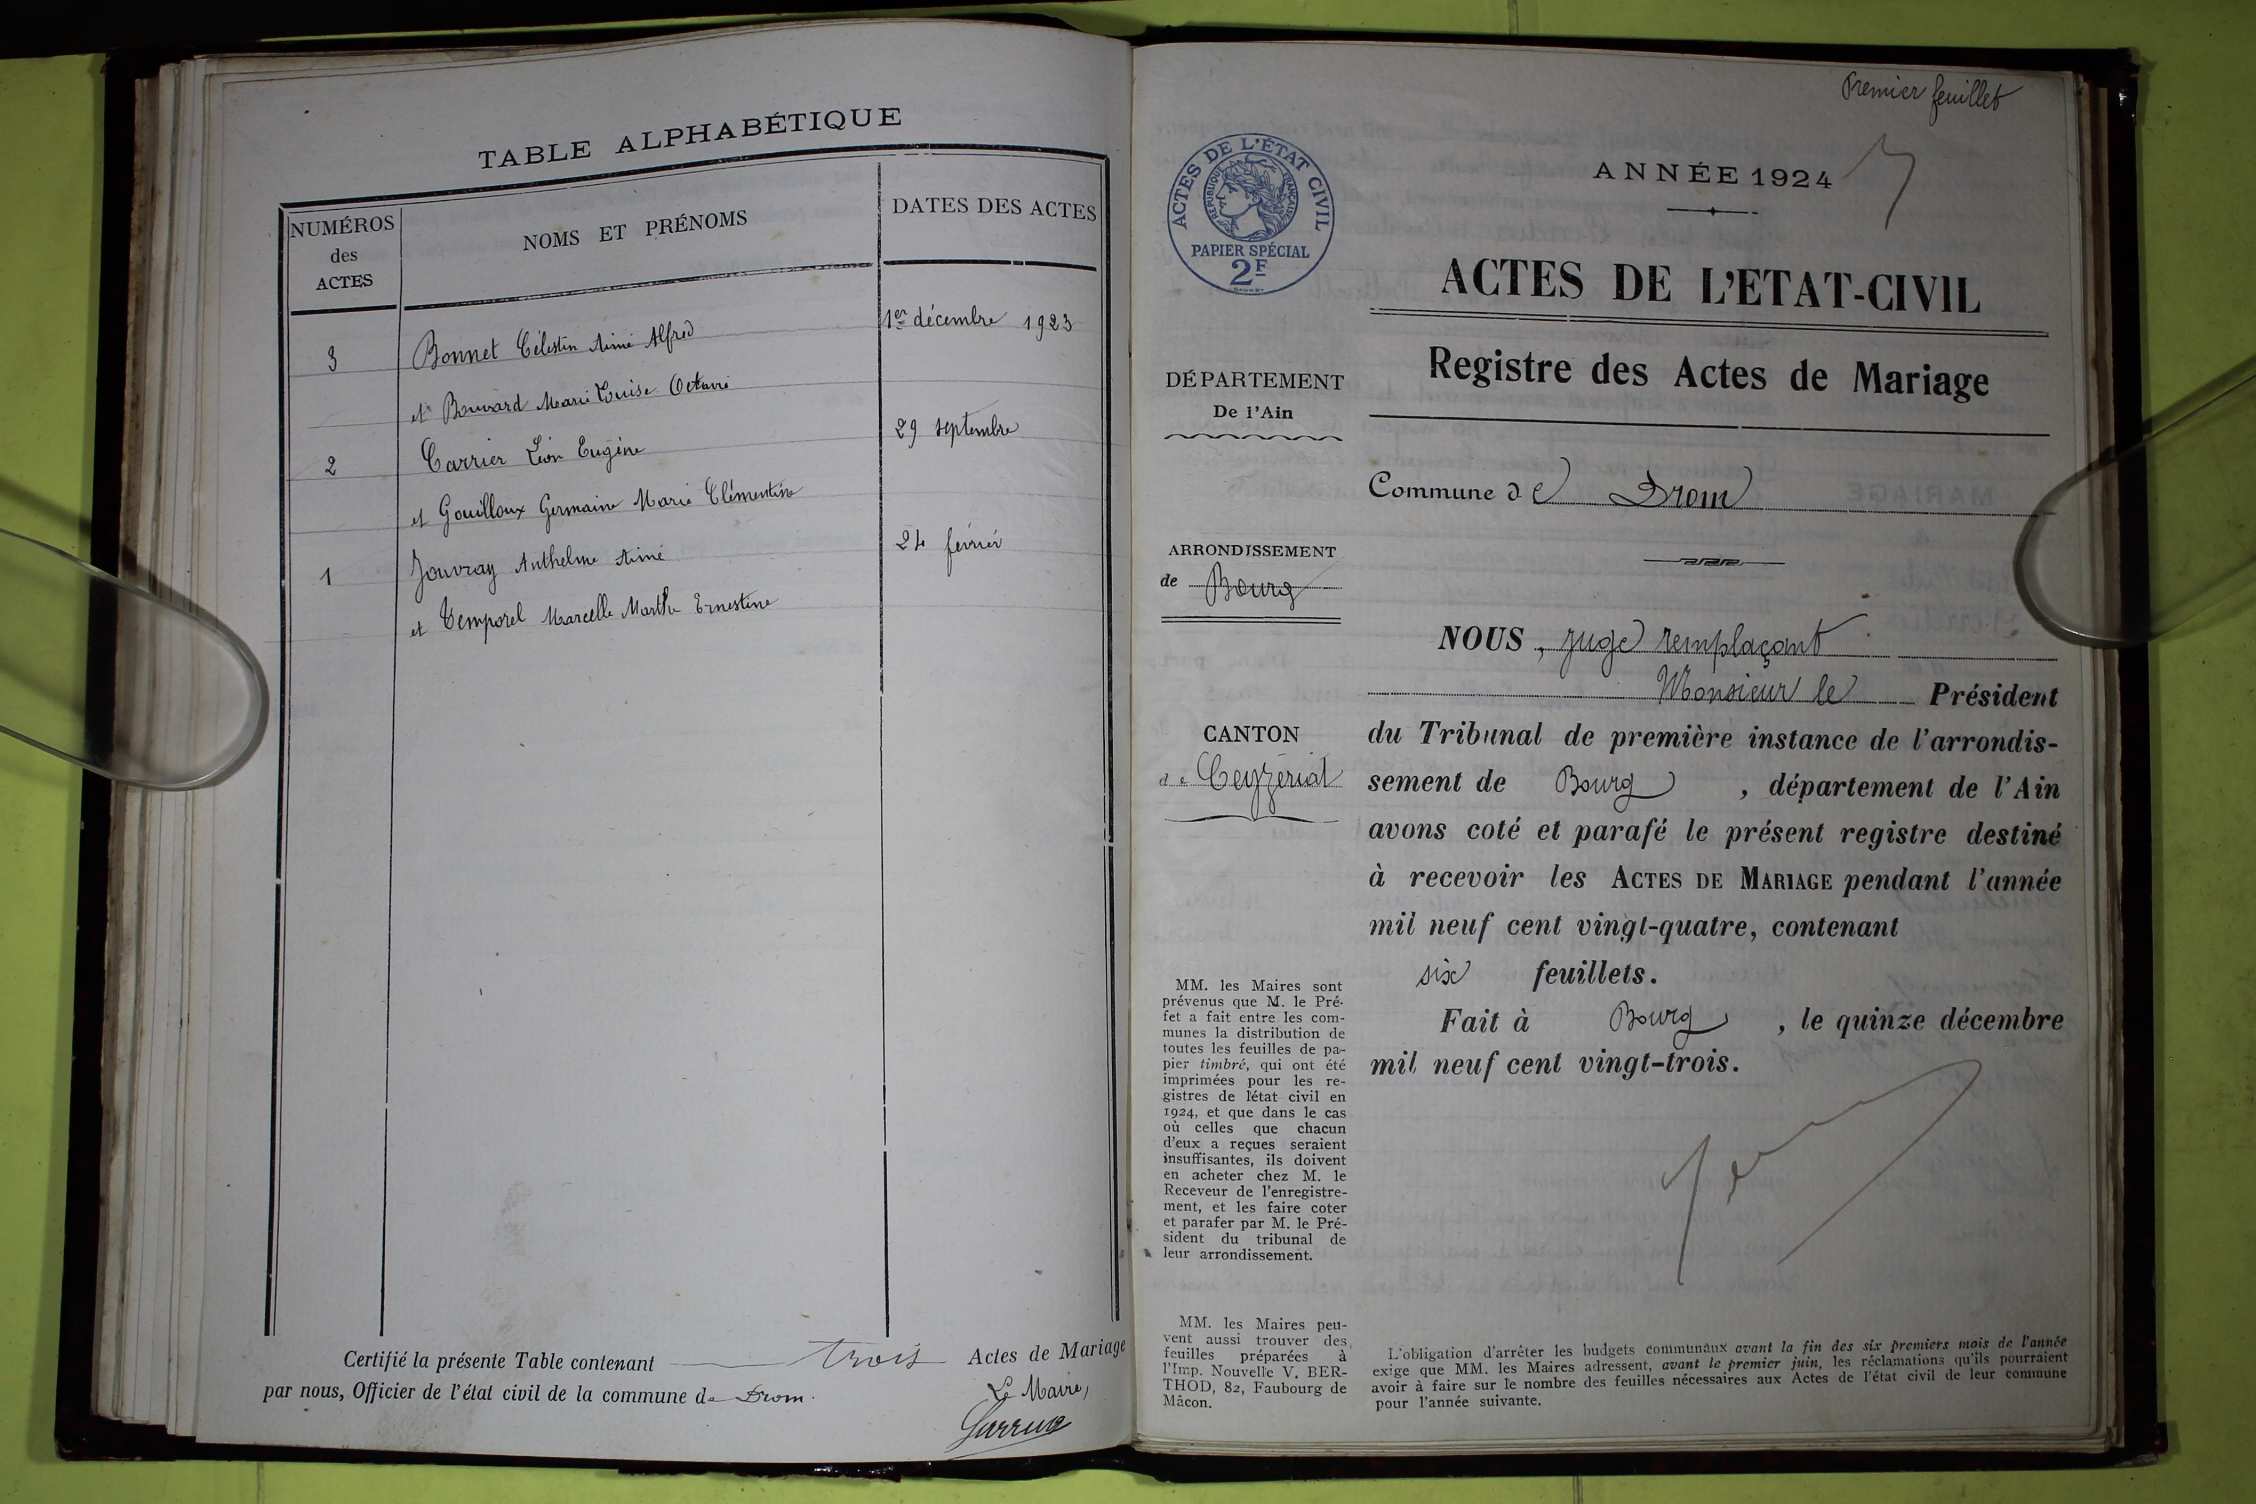 TABLE ALPHABÉTIQUE
NUMÉROS
des
ACTES
NOMS ET PRÉNOMS
DATES DES ACTES
3 Bonnet Célestin Aimé Alfred 1er décembre 1923
et Bouvard Marie Louise Octavie
2 Carrier Léon Eugène 29 septembre
et Gouilloux Germaine Marie Clémentine
1 Jouvray Anthelme Aimé 24 février
et Temporel Marcelle Marthe Ernestine
Certifié la présente Table contenant trois Actes de Mariage
par nous, Officier de l'état civil de la commune de Drom.
Le Maire,
Premier feuillet
ACTES DE L'ÉTAT CIVIL
RÉPUBLIQUE FRANÇAISE
PAPIER SPÉCIAL
2F
ANNÉE 1924
ACTES DE L'ETAT-CIVIL
Registre des Actes de Mariage
DÉPARTEMENT
De l'Ain
Commune de Drom
ARRONDISSEMENT
de Bourg
CANTON
de Ceyzériat
NOUS, juge remplaçant
Monsieur le Président
du Tribunal de première instance de l'arrondis-
sement de Bourg, département de l'Ain
avons coté et parafé le présent registre destiné
à recevoir les ACTES DE MARIAGE pendant l'année
mil neuf cent vingt-quatre, contenant
six feuillets.
Fait à Bourg, le quinze décembre
mil neuf cent vingt-trois.
MM. les Maires sont
prévenus que M. le Pré-
fet a fait entre les com-
munes la distribution de
toutes les feuilles de pa-
pier timbré, qui ont été
imprimées pour les re-
gistres de l'état civil en
1924, et que dans le cas
où celles que chacun
d'eux a reçues seraient
insuffisantes, ils doivent
en acheter chez M. le
Receveur de l'enregistre-
ment, et les faire coter
et parafer par M. le Pré-
sident du tribunal de
leur arrondissement.
MM. les Maires peu-
vent aussi trouver des
feuilles préparées à
l'Imp. Nouvelle V. BER-
THOD, 82, Faubourg de
Mâcon.
L'obligation d'arrêter les budgets communaux avant la fin des six premiers mois de l'année
exige que MM. les Maires adressent, avant le premier juin, les réclamations qu'ils pourraient
avoir à faire sur le nombre des feuilles nécessaires aux Actes de l'état civil de leur commune
pour l'année suivante.